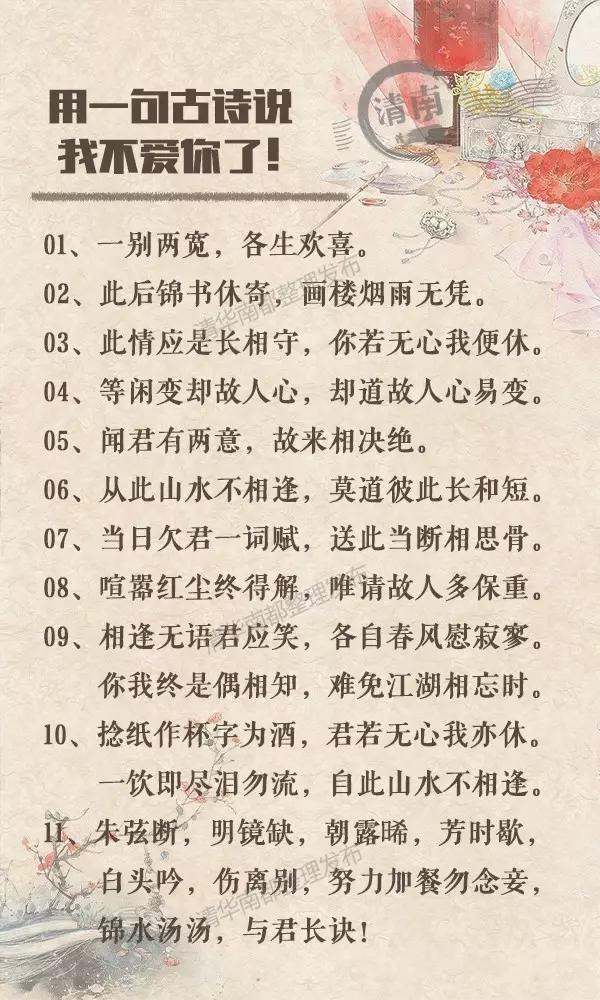 清南
用一句古诗说
我不爱你了!
01、一别两宽，各生欢喜。
02、此后锦书休寄，画楼烟雨无凭。
清华南都整理发布
03、此情应是长相守，你若无心我便休。
04、等闲变却故人心，却道故人心易变。
05、闻君有两意，故来相决绝。
06、从此山水不相逢，莫道彼此长和短。
07、当日欠君一词赋，送此当断相思骨。
08、喧嚣红尘终得解，唯请故人多保重。
清华南都整理发布
09、相逢无语君应笑，各自春风慰寂寥。
你我终是偶相知，难免江湖相忘时。
10、捻纸作杯字为酒，君若无心我亦休。
一饮即尽泪勿流，自此山水不相逢。
11、朱弦断，明镜缺，朝露晞，芳时歇，
白头吟，伤离别，努力加餐勿念妾，
清华南都整理发布
锦水汤汤，与君长诀!